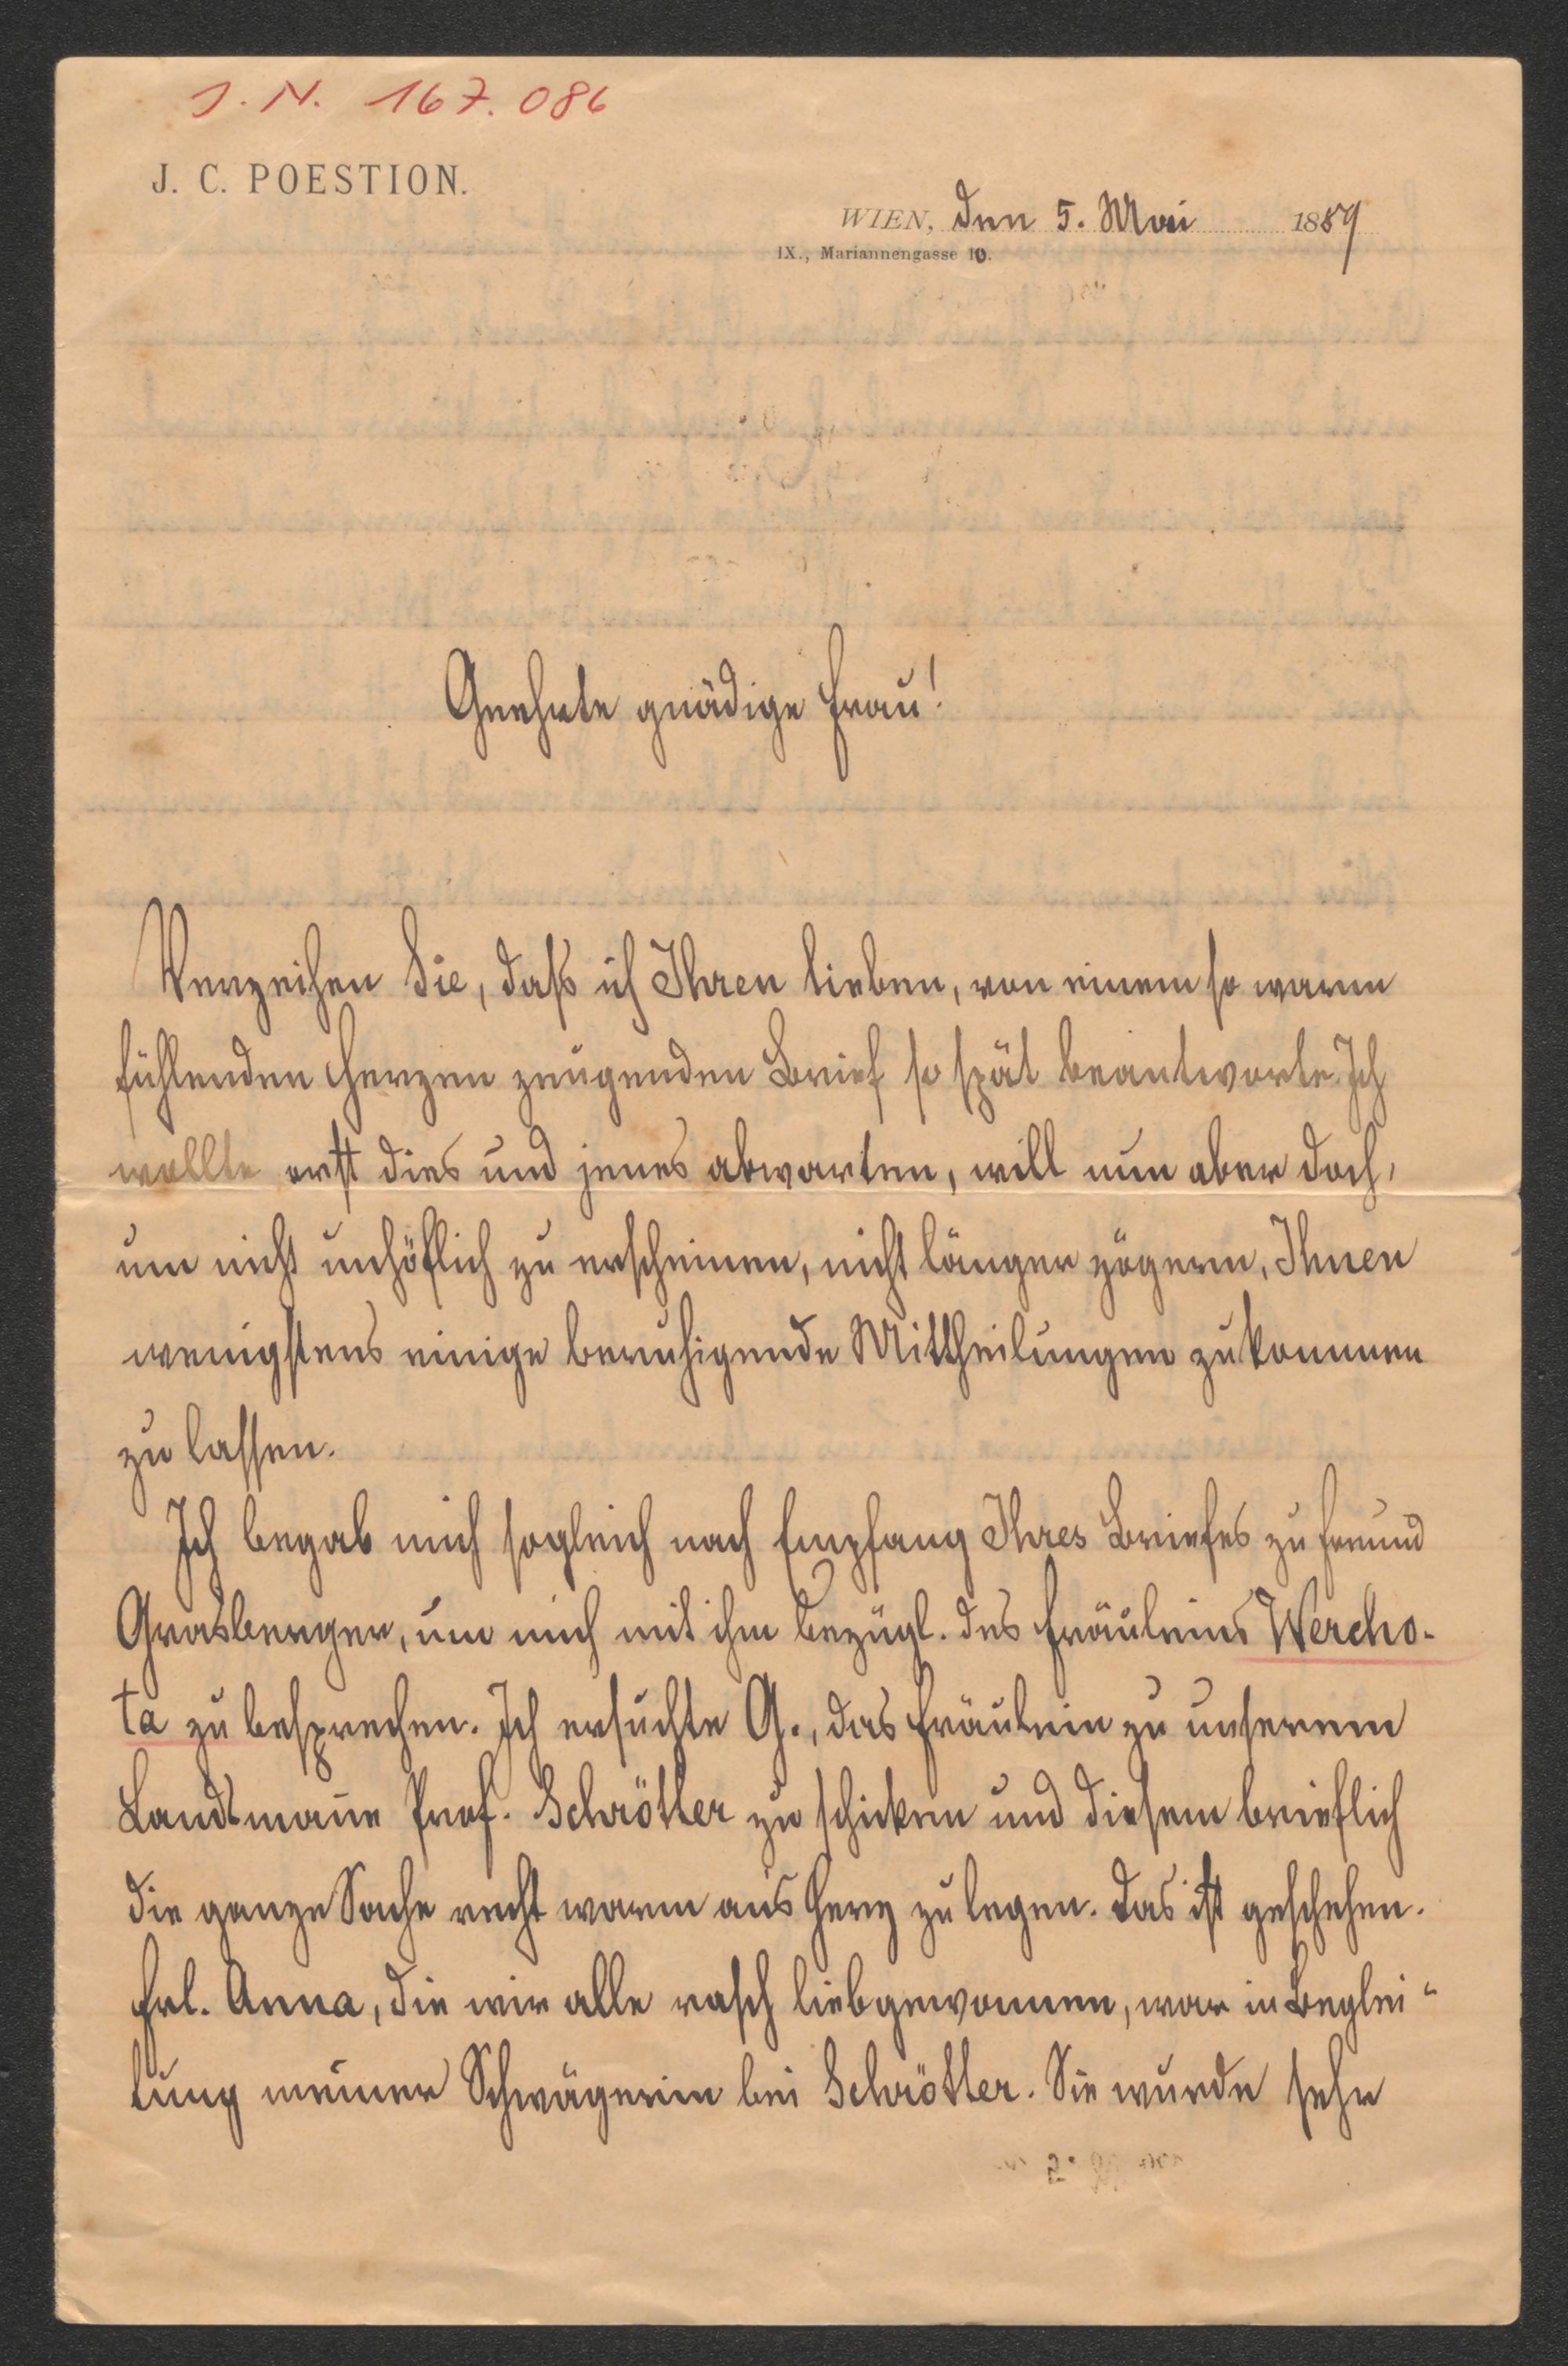 J. N. 167.086
J. C. POESTION.
WIEN, den 5. Mai 1889
IX., Mariannengasse 10.
Geehrte gnädige Frau!
Verzeihen Sie, daß ich Ihren lieben, von einem so warm
fühlenden Herzen zeugenden Brief so spät beantworte. Ich
wollte erst dies und jenes abwarten, will nun aber doch,
um nicht unhöflich zu erscheinen, nicht länger zögern, Ihnen
wenigstens einige beruhigende Mittheilungen zukommen
zu lassen.
Ich begab mich sogleich nach Empfang Ihres Briefes zu Freund
Grasberger, um mich mit ihm bezügl. des Fräuleins Wercho-
ta zu besprechen. Ich ersuchte G., das Fräulein zu unserem
Landsmann Prof. Schrötter zu schicken und diesem brieflich
die ganze Sache recht warm ans Herz zu legen. Das ist geschehen.
Frl. Anna, die wir alle rasch liebgewonnen, war in Beglei-
tung meiner Schwägerin bei Schrötter. Sie wurde sehr